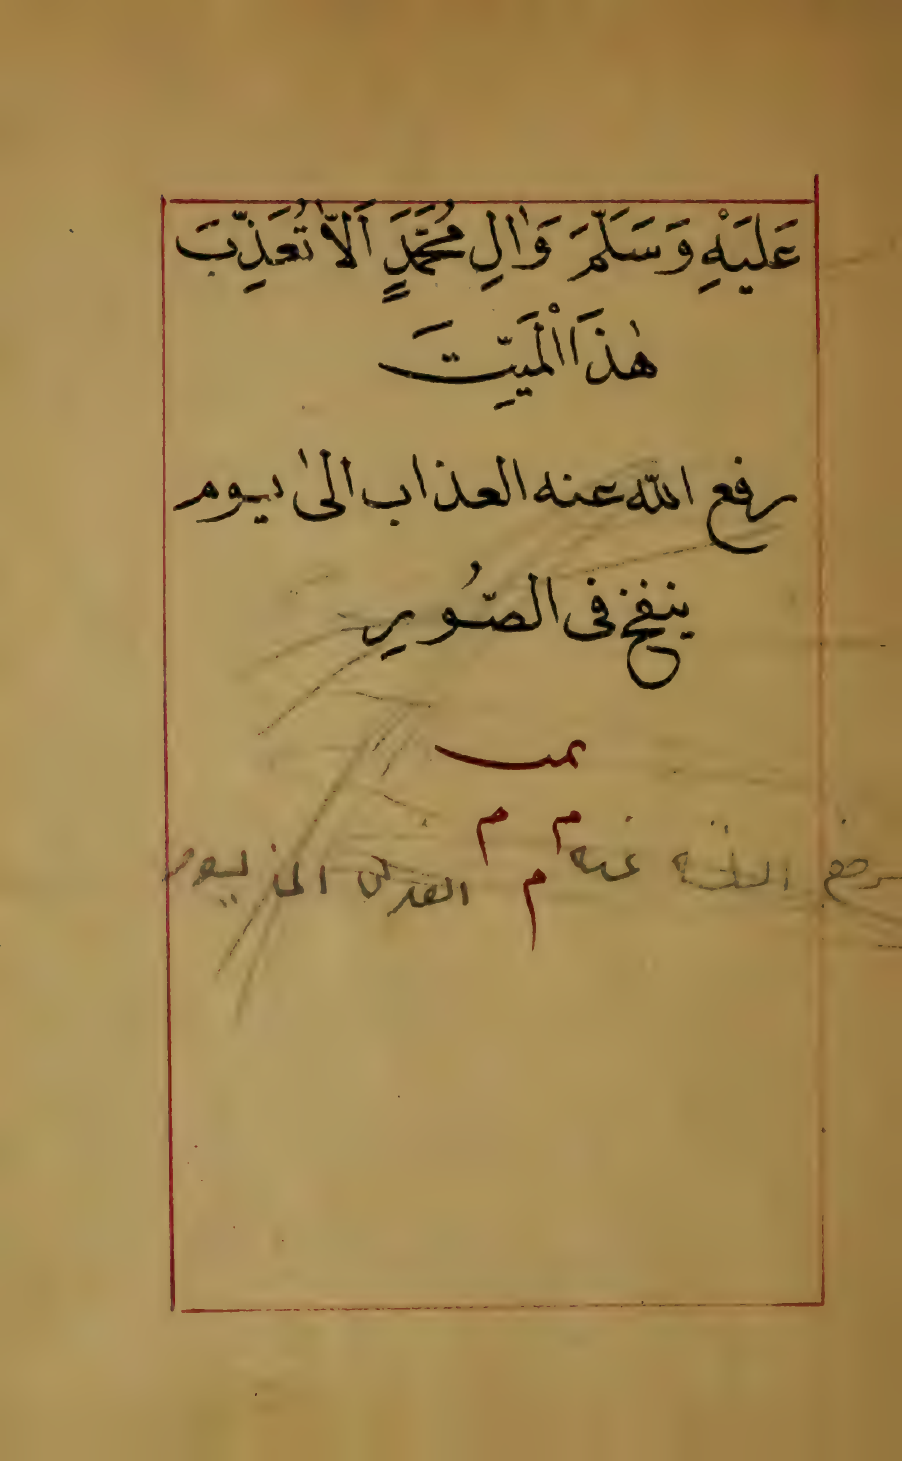 عَلَيْهِ وَسَلَّمَ وَاٰلِ مُحَمَّدٍ اَلَّا تُعَذِّبَ
هٰذَا الْمَيِّتَ
رفع الله عنه العذاب الىٰ يوم
ينفخ فى الصُّورِ
تمت
م م
م
الى ليوم